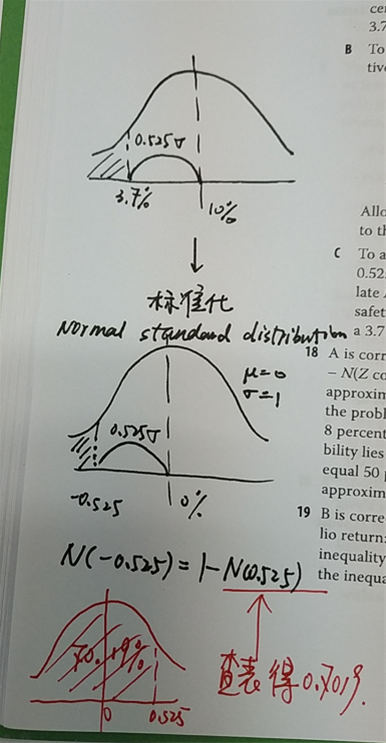 0.525σ
3.7%
10%
标准化
Normal standard distribution
μ=0
σ=1
0.525σ
-0.525
0%
N(-0.525)=1-N(0.525)
70.19%
0
0.525
查表得0.7019.
3.7
B To
tive
Allo
to th
C To a
0.52
late
safet
a 3.7
18 A is corr
– N(Z co
approxim
the probl
8 percent
bility lies
equal 50 p
approxim
19 B is corre
lio return:
inequality
the inequa